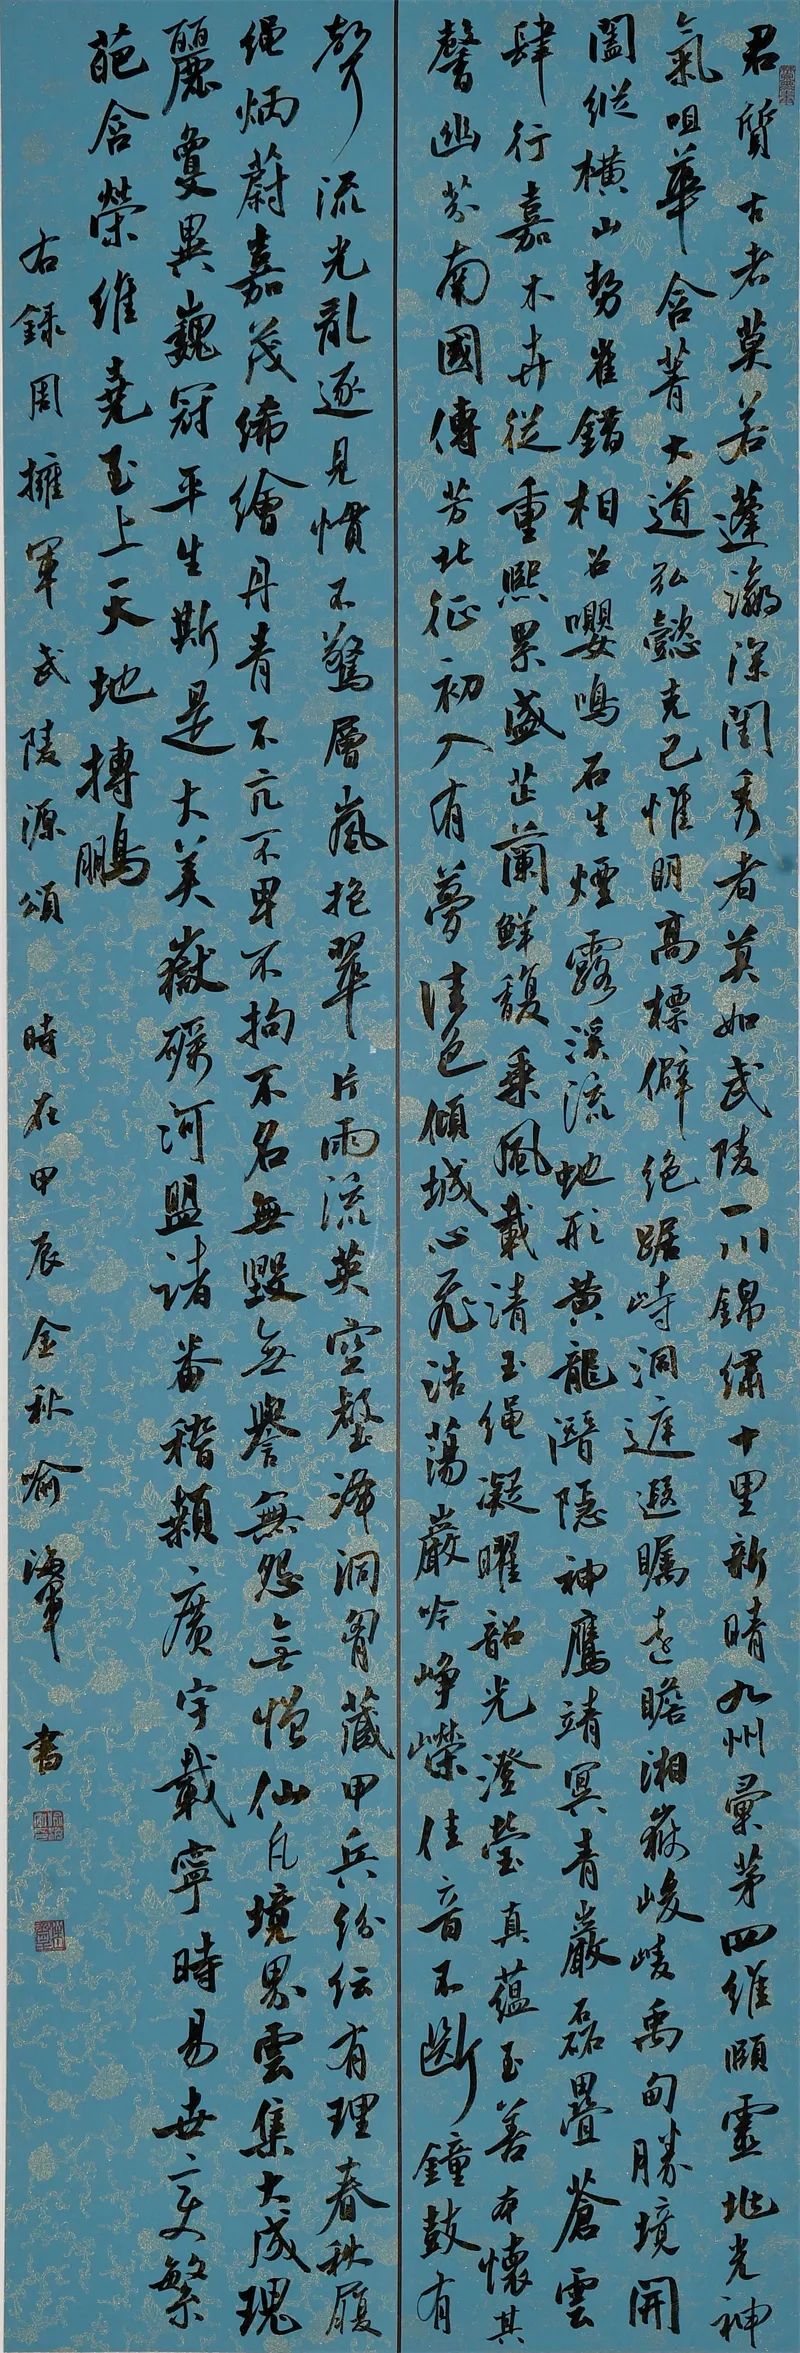 君質古者莫若蓬瀛深閨秀者莫如武陵一川錦繡十里新晴九州彙茅四維頤靈地光神
氣咀華含菁大道弘懿克己惟明高標僻絕踞峙洞庭遐矚遠瞻湘嶽峻崚禹甸勝境開
闔縱橫山勢崔錯相召嚶鳴石生煙露溪流地形黃龍潛隱神鷹靖冥青巖磊疊蒼雲
肆行嘉木卉從重熙累盛芷蘭鮮馥乘風載清玉繩凝曜韶光澄瑩真蘊至善本懷其
馨幽芬南國傳芳北征初入有夢佳色傾城心飛浩蕩巖吟崢嶸佳音不斷鐘鼓有
聲流光亂逐見慣不驚層嵐抱翠片雨流英空壑澒洞胸藏甲兵紛紜有理春秋履
繩炳蔚嘉茂絺繪丹青不亢不卑不拘不名無毀無譽無怨無憎仙凡境界雲集大成瑰
麗夐異巍冠平生斯是大美嶽礫河盟諸番稽顙廣宇載寧時易世變繁
葩含榮維堯至上天地摶鵬
右錄周擁軍武陵源頌 時在甲辰金秋喻海軍 書